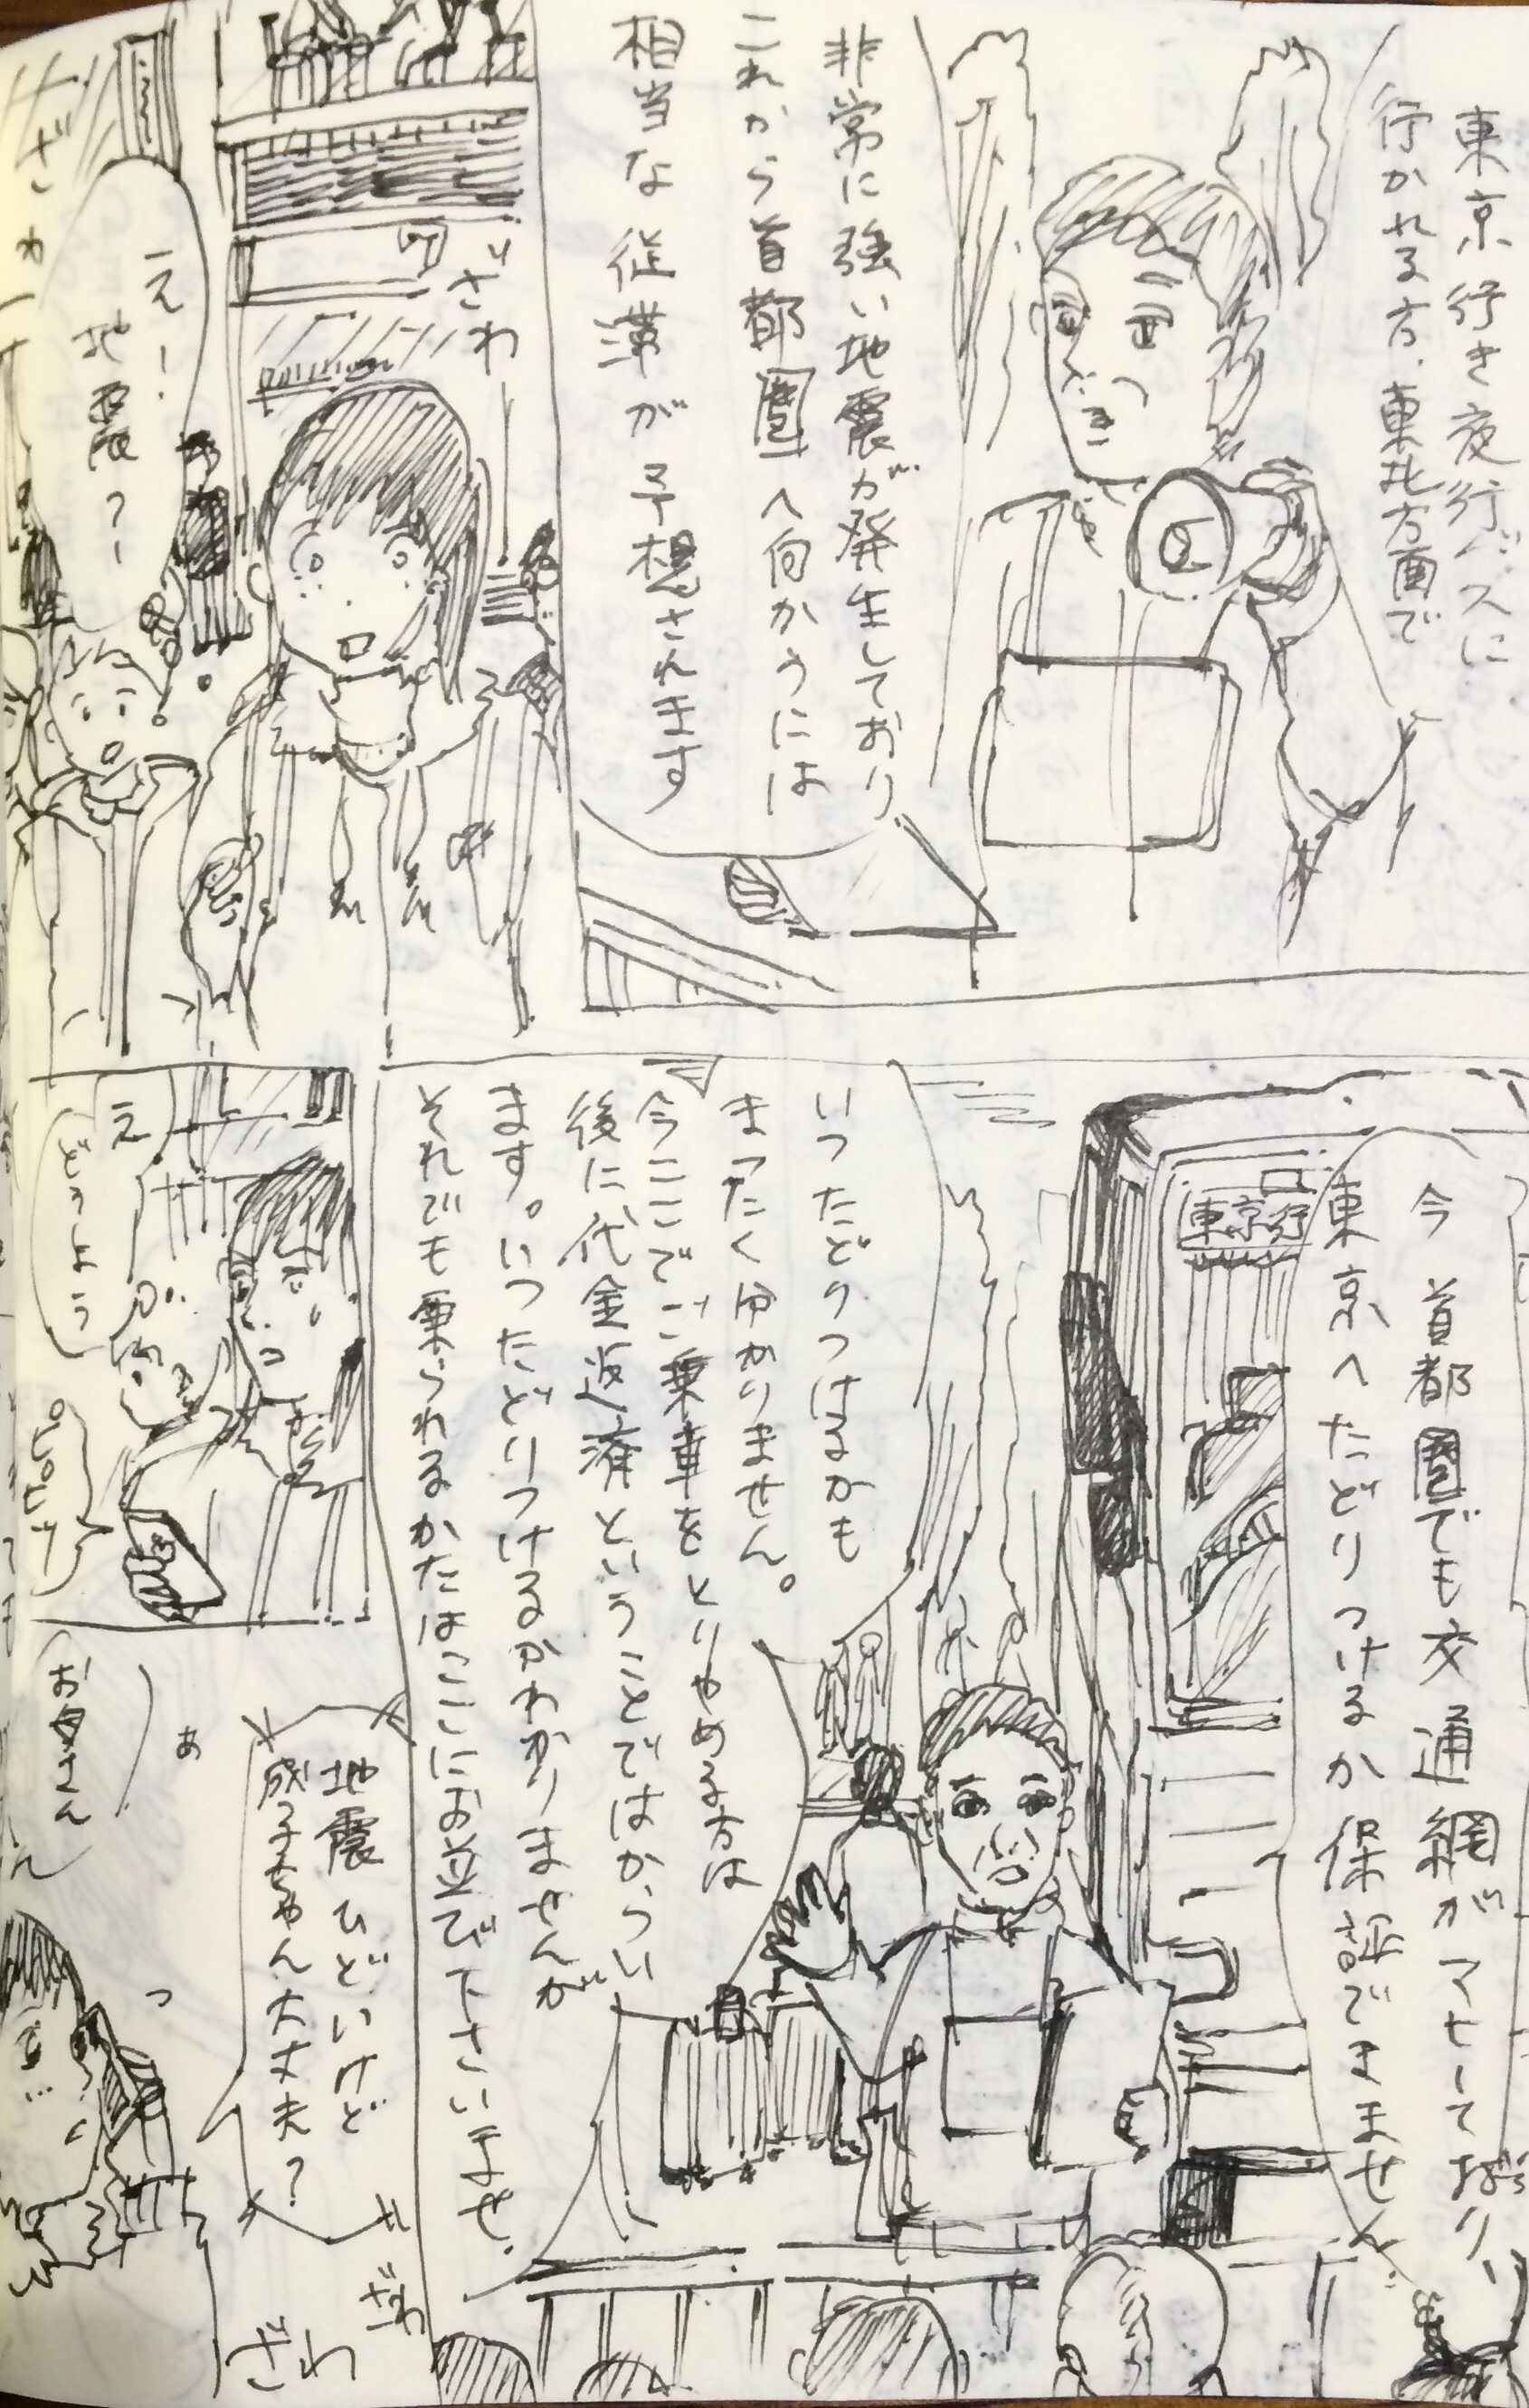 東京行き夜行バスに
行かれる方、東北方面で
非常に強い地震が発生しており
これから首都圏へ向かうには
相当な渋滞が予想されます
ざわ
えー!
地震?ー
ざわ
今首都圏でも交通網がマヒしており、
東京へたどりつけるか保証できません
東京行
いつたどりつけるかも
まったく分かりません。
今ここでご乗車をとりやめる方は
後に代金返済ということではからい
ます。いつたどりつけるかわかりませんが
それでも乗られるかたはここにお並び下さいませ。
え
どうしよう
地震ひどいけど
成子ちゃん大丈夫?
あ
お母さん
っ
ざわ
ざわ